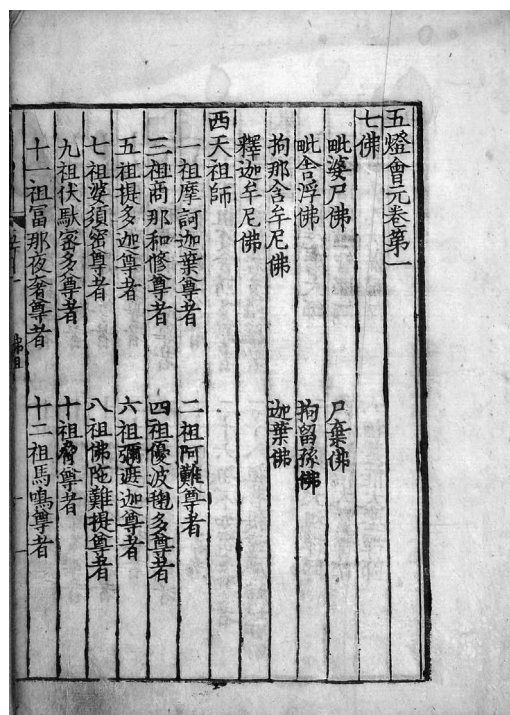 五燈會元卷第一
七佛
毗婆尸佛 尸棄佛
毗舎浮佛 拘留孫佛
拘那含牟尼佛 迦葉佛
釋迦牟尼佛
西天祖師
一祖摩訶迦葉尊者 二祖阿難尊者
三祖商那和修尊者 四祖優波毱多尊者
五祖提多迦尊者 六祖彌遮迦尊者
七祖婆須密尊者 八祖佛陁難提尊者
九祖伏馱密多尊者 十祖脅尊者
十一祖冨那夜奢尊者 十二祖馬鳴尊者